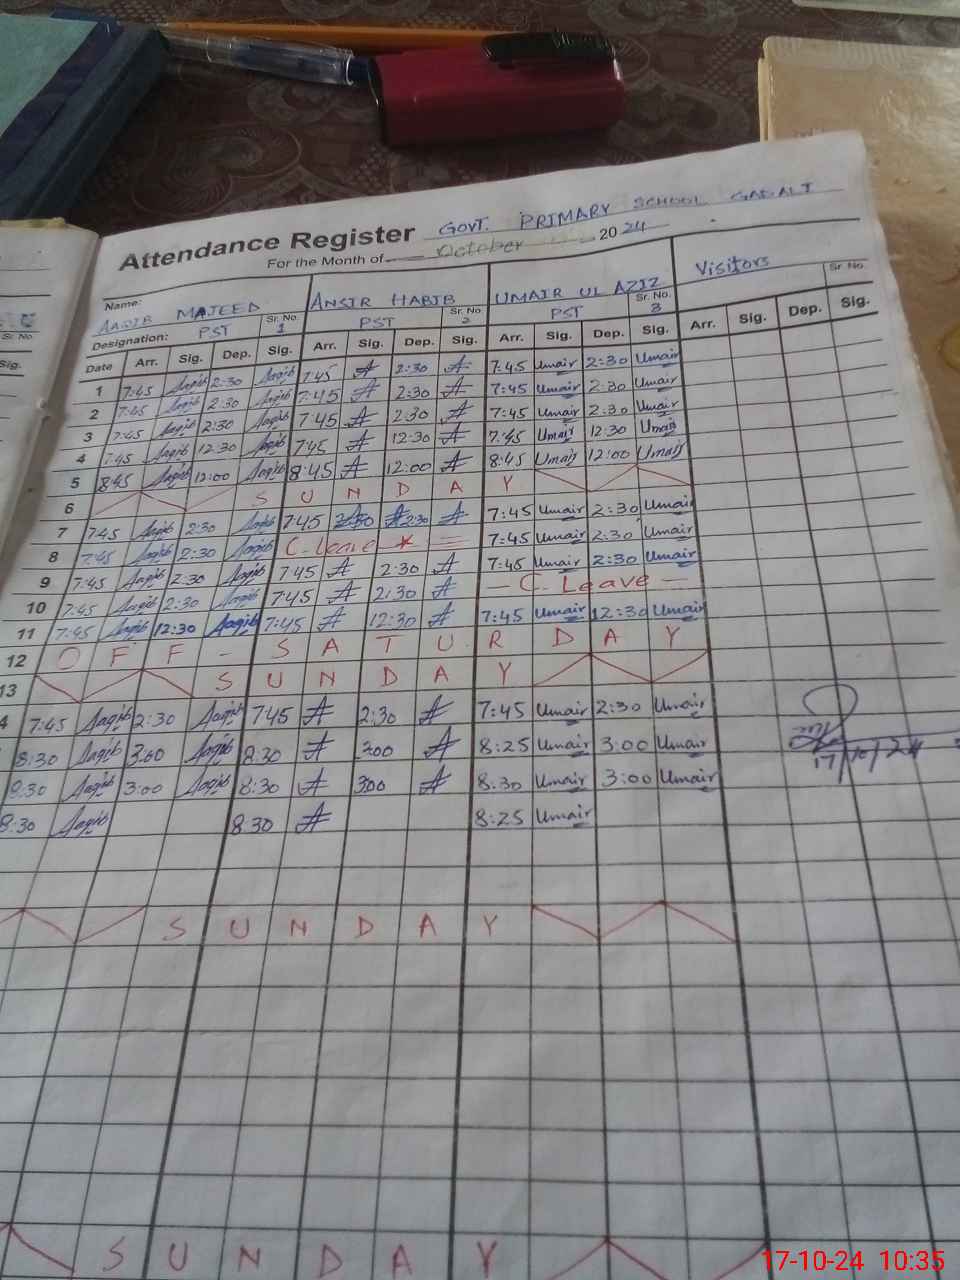 GOVT. PRIMARY SCHOOL GADALT
Attendance Register
For the Month of October 2024
Name: AAQIB MAJEED ANSIR HABIB UMAIR UL AZIZ Visitors
Designation: PST Sr. No. 1 PST Sr. No. 2 PST Sr. No. 3 Sr. No.
Date Arr. Sig. Dep. Sig. Arr. Sig. Dep. Sig. Arr. Sig. Dep. Sig. Arr. Sig. Dep. Sig.
1 7:45 Aaqib 2:30 Aaqib 7:45 A 2:30 A 7:45 Umair 2:30 Umair
2 7:45 Aaqib 2:30 Aaqib 7:45 A 2:30 A 7:45 Umair 2:30 Umair
3 7:45 Aaqib 2:30 Aaqib 7:45 A 2:30 A 7:45 Umair 2:30 Umair
4 7:45 Aaqib 12:30 Aaqib 7:45 A 12:30 A 7:45 Umair 12:30 Umair
5 8:45 Aaqib 12:00 Aaqib 8:45 A 12:00 A 8:45 Umair 12:00 Umair
6 S U N D A Y
7 7:45 Aaqib 2:30 Aaqib 7:45 A 2:30 A 7:45 Umair 2:30 Umair
8 7:45 Aaqib 2:30 Aaqib C. Leave 7:45 Umair 2:30 Umair
9 7:45 Aaqib 2:30 Aaqib 7:45 A 2:30 A 7:45 Umair 2:30 Umair
10 7:45 Aaqib 2:30 Aaqib 7:45 A 2:30 A — C. Leave —
11 7:45 Aaqib 12:30 Aaqib 7:45 A 12:30 A 7:45 Umair 12:30 Umair
12 O F F - S A T U R D A Y
13 S U N D A Y
4 7:45 Aaqib 2:30 Aaqib 7:45 A 2:30 A 7:45 Umair 2:30 Umair
8:30 Aaqib 3:00 Aaqib 8:30 A 3:00 A 8:25 Umair 3:00 Umair
17/10/24
8:30 Aaqib 3:00 Aaqib 8:30 A 3:00 A 8:30 Umair 3:00 Umair
8:30 Aaqib 8:30 A 8:25 Umair
S U N D A Y
S U N D A Y
17-10-24 10:35